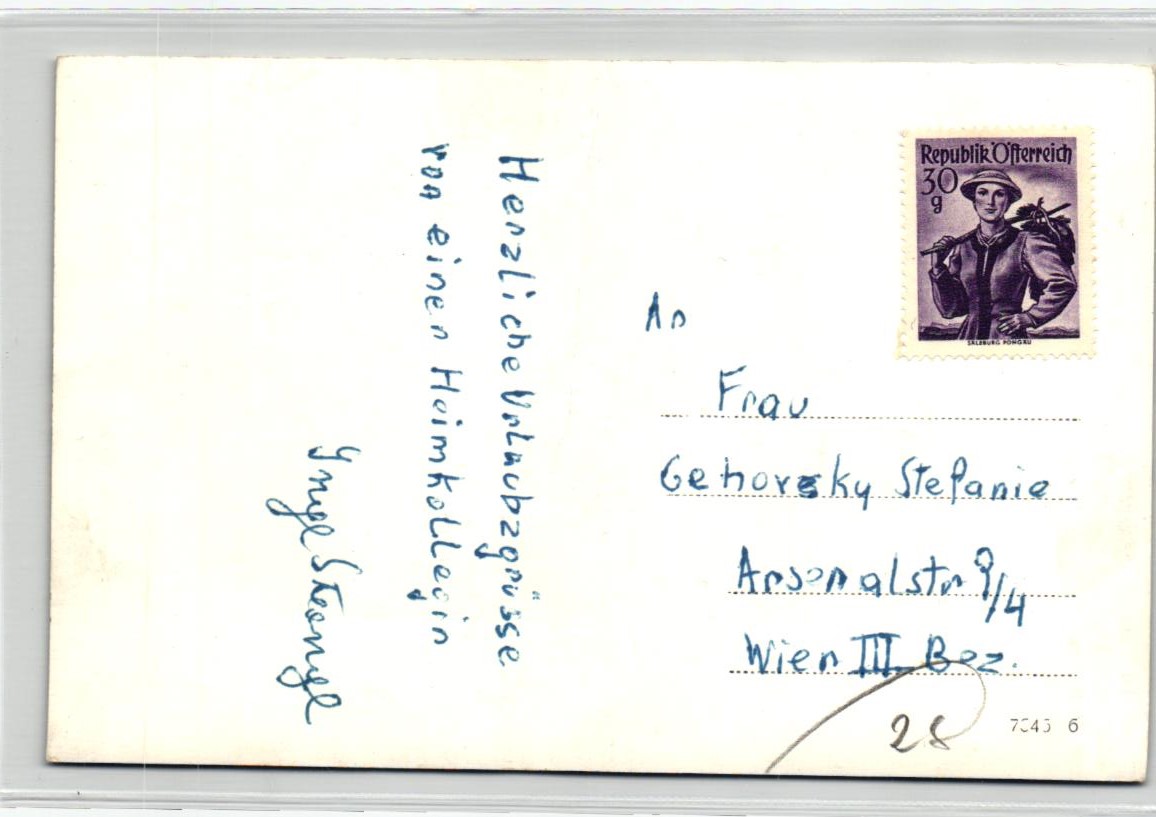 Herzliche Urlaubzgrüsse
von einen Heimkollegin
Republik Österreich
30
g
SALZBURG PONGAU
An
Frau
Gehorsky Stefanie
Arsenalstr 9/4
Wien III Bez.
28
6